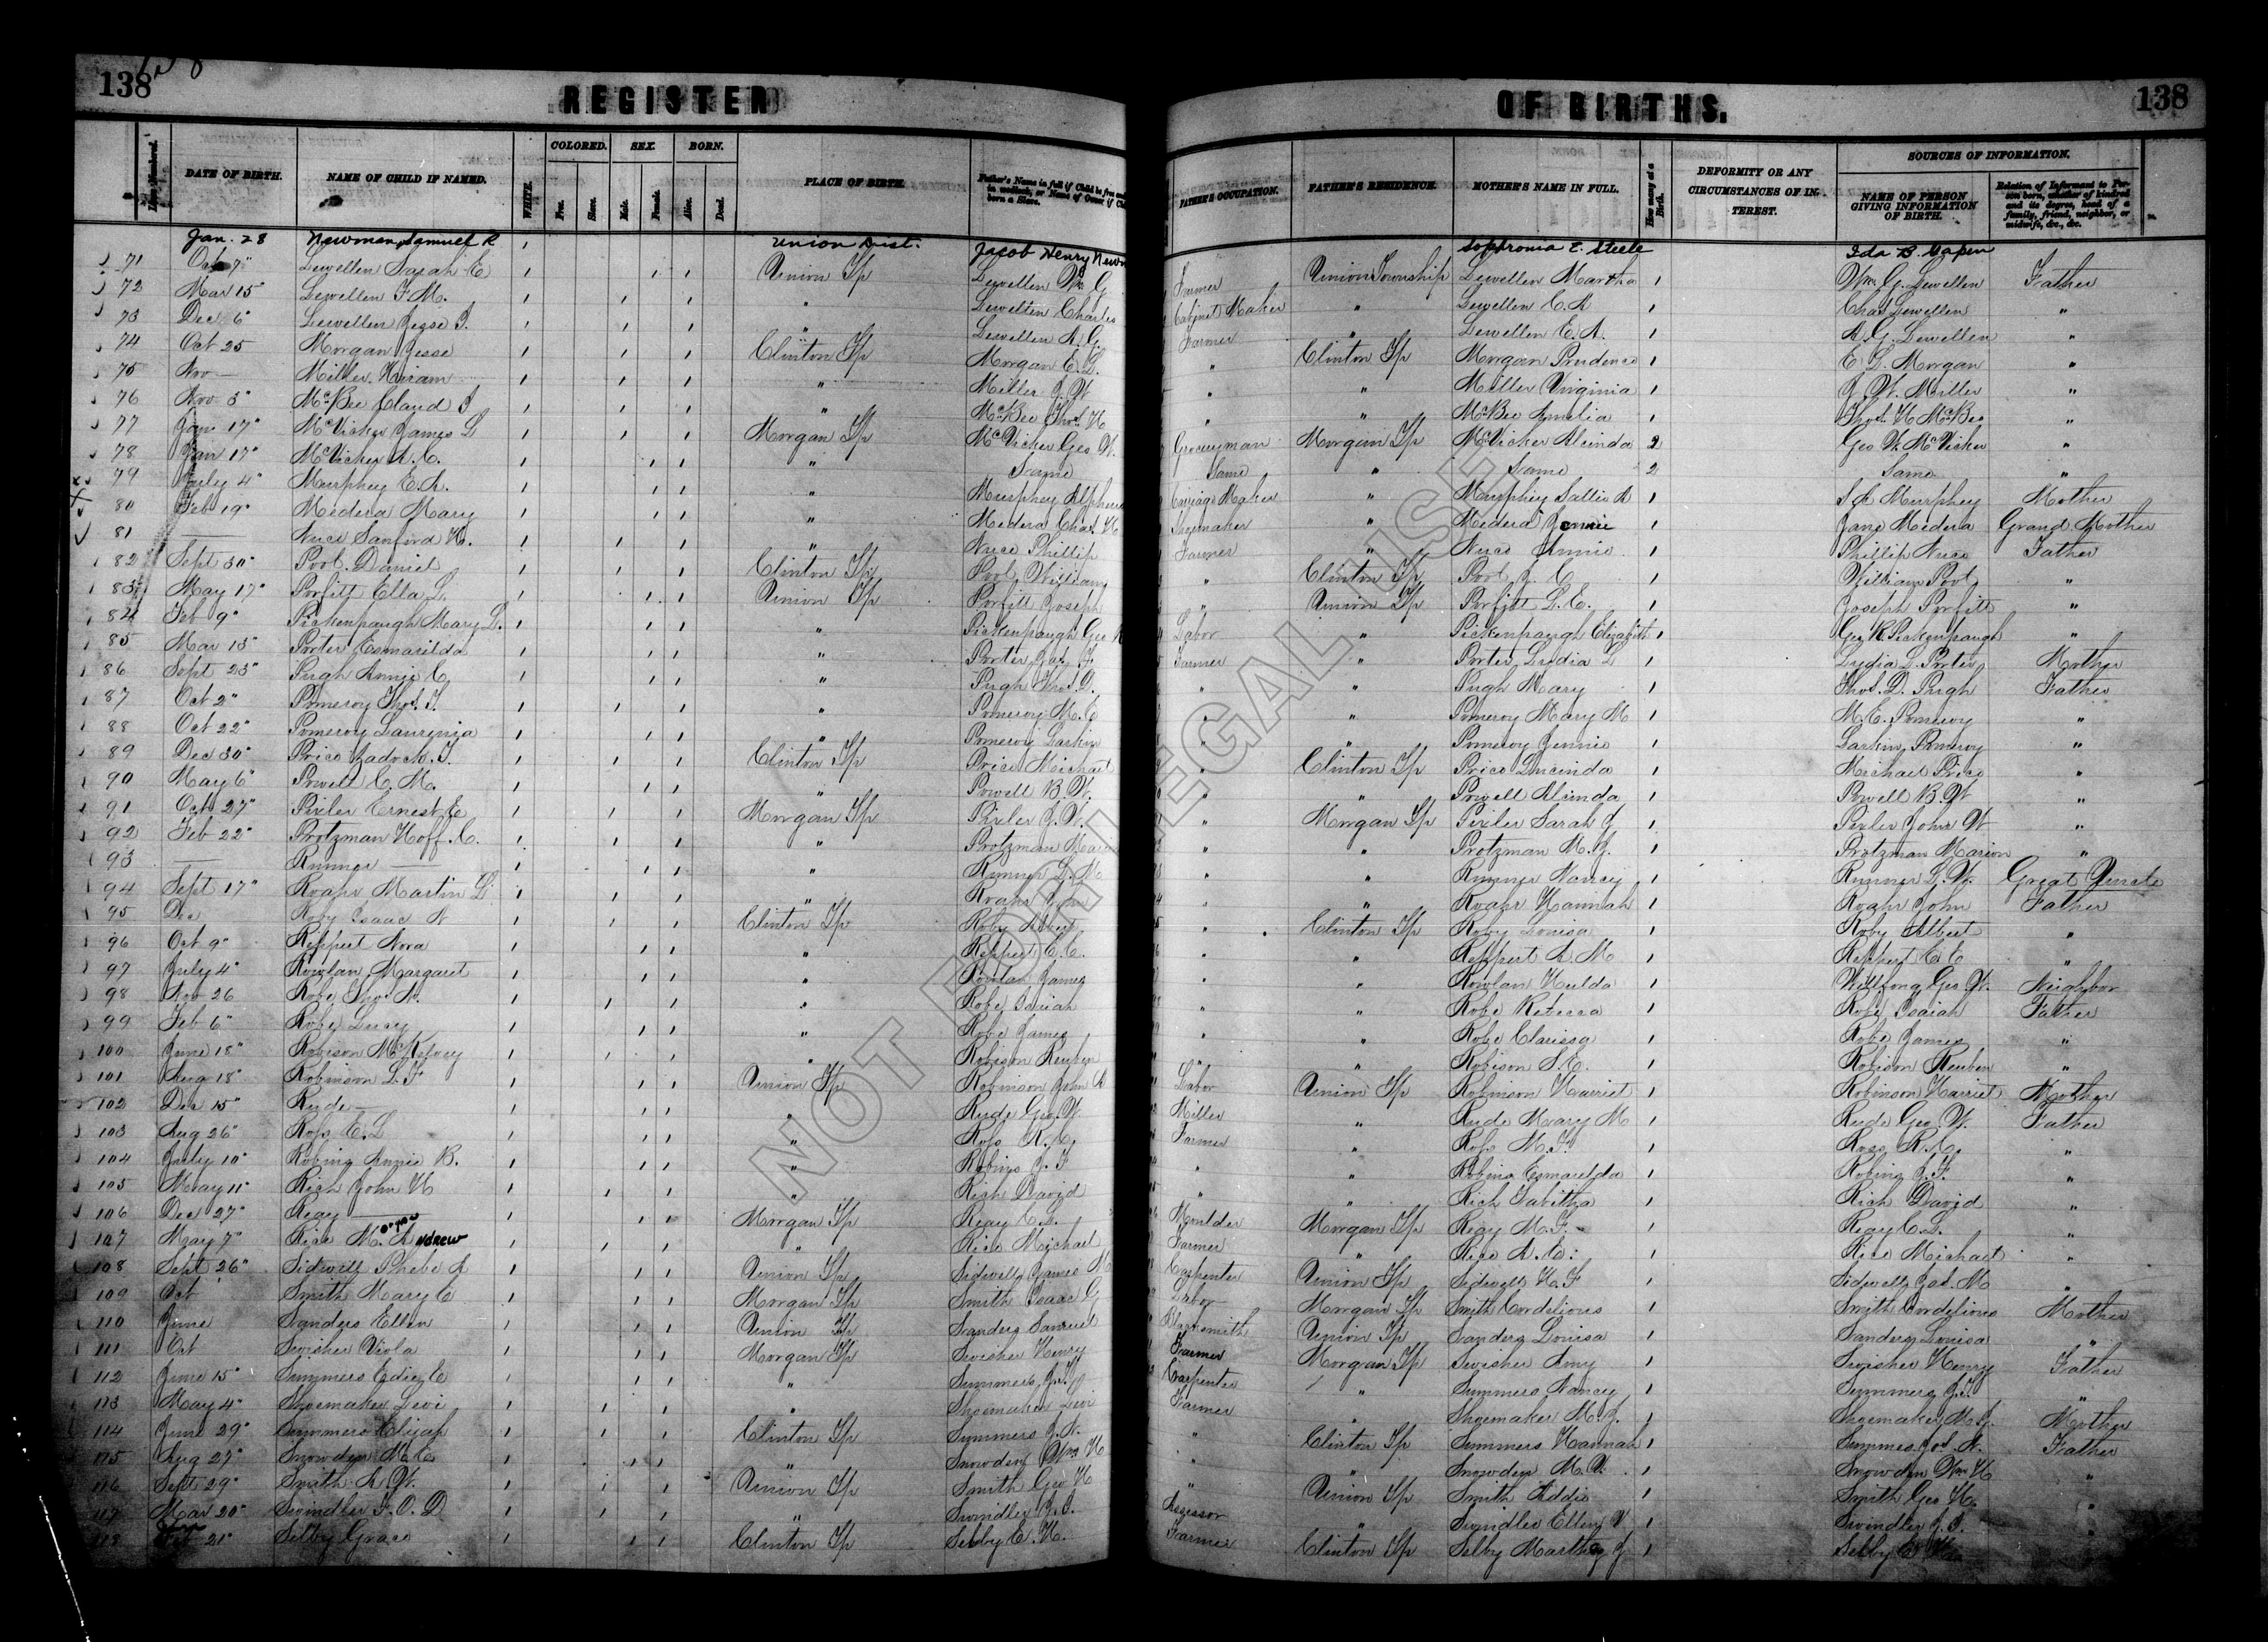 138
138
REGISTER
OF BIRTHS.
138
DATE OF BIRTH. NAME OF CHILD IF NAMED. WHITE. COLORED. Free. Slave. SEX. Male. Female. BORN. Alive. Dead. PLACE OF BIRTH. Father's Name in full if Child be free and in wedlock, or Name of Owner if born a Slave. FATHER'S OCCUPATION. FATHER'S RESIDENCE. MOTHER'S NAME IN FULL. How many at a Birth. DEFORMITY OR ANY CIRCUMSTANCES OF INTEREST. SOURCES OF INFORMATION. NAME OF PERSON GIVING INFORMATION OF BIRTH. Relation of Informant to Person born, whether of kindred and its degree, head of a family, friend, neighbor, or midwife, &c., &c.
Jan. 28 Newman, Samuel R Union Dist. Jacob Henry Newm Sophronia E. Steele Ida B.
71 Oct 7" Lewellen Sarah E Union Tp Lewellen Wm G Farmer Union Township Lewellen Martha 1 Wm. G. Lewellen Father
72 Mar 15" Lewellen F. M. " Lewellen Charles Cabinet Maker " Lewellen E. A 1 Chas Lewellen "
73 Dec 6" Lewellen Jesse " Lewellen A. G. Farmer " Lewellen E. A. 1 A. G. Lewellen "
74 Oct 25 Morgan Jesse Clinton Tp Morgan E. L. " Clinton Tp Morgan Prudence 1 E. L. Morgan "
75 Nov — Miller Hiram " Miller J. W " " Miller Virginia 1 J. W. Miller "
76 Nov 3" McBee Claud " McBee Thos. H " " McBee Amelia 1 Thos. H McBee "
77 17" McVicker James L Morgan Tp McVicker Geo. W. Groceryman Morgan Tp McVicker Alcinda 2 Geo W. McVicker "
78 Jan 17" McVicker A. C. " Same Same " Same 2 Same "
79 July 4" Murphey E. A. " Murphey Alpheus Carriage Maker " Murphey Sallie A 1 S A Murphey Mother
80 Feb 19" Medera Mary " Medera Chas. H Shoemaker " Medera Jennie 1 Jane Medera Grand Mother
81 — Nuce Sanford H. " Nuce Phillip Farmer " Nuce Annie 1 Phillip Nuce Father
82 Sept 30" Pool Daniel Clinton Tp Pool William " Clinton Tp Pool J. C 1 William Pool "
83 May 17" Porfitt Ella L. Union Tp Porfitt Joseph " Union Tp Porfitt L. E. 1 Joseph Porfitt "
84 Feb 9" Pickenpaugh Mary L. " Pickenpaugh Geo R Labor " Pickenpaugh Elizabeth 1 Geo R Pickenpaugh "
85 Mar 13" Porter Esmarilda " Porter Jas. F. Farmer " Porter Lydia L 1 Lydia L Porter Mother
86 Sept 23" Pugh Annie C " Pugh Thos. D. " " Pugh Mary 1 Thos. D. Pugh Father
87 Oct 2" Pomeroy Thos. " Pomeroy M. E " " Pomeroy Mary M 1 M. E. Pomeroy "
88 Oct 22" Pomeroy Laurenia " Pomeroy Larkin " " Pomeroy Jennie 1 Larkin Pomeroy "
89 Dec 30" Price Zadock Clinton Tp Price Michael " Clinton Tp Price Lucinda 1 Michael Price "
90 May 6" Powell C. M. " Powell B. W. " " Powell Alcinda 1 Powell B. W "
91 Oct 27" Pixler Ernest E Morgan Tp Pixler J. W. " Morgan Tp Pixler Sarah J 1 Pixler John W "
92 Feb 22" Protzman Hoff. C. " Protzman Mari " " Protzman M. J. 1 Protzman Marion "
93 — Runner — " Runner L. M " " Runner Nancy 1 Runner L. W. Great Uncle
94 Sept 17" Roahr Martin L " Roahr John " " Roahr Hannah 1 Roahr John Father
95 Dec Roby Isaac N Clinton Tp Roby Albert " Clinton Tp Roby Louisa 1 Roby Albert "
96 Oct 9" Reppert Nora " Reppert E. E. " " Reppert A. M 1 Reppert E E "
97 July 4" Rowlan Margaret " Rowlan James " " Rowlan Hulda 1 Wilfong Geo W. Neighbor
98 Nov 26 Robe Thos. " Robe Isaiah " " Robe Rebecca 1 Robe Isaiah Father
99 Feb 6" Robe Lucy " Robe James " " Robe Clarissa 1 Robe James "
100 June 18" Robison McKelvey " Robison Reuben " " Robison S. E. 1 Robison Reuben "
101 Aug 18" Robinson L. F Union Tp Robinson John A Labor Union Tp Robinson Harriet 1 Robinson Harriet Mother
102 Dec 15" Rude " Rude Geo. W. Miller " Rude Mary M 1 Rude Geo W. Father
103 Aug 26" Ross E. L " Ross R. C. Farmer " Ross M. F. 1 Ross R. C. "
104 July 10" Robins Annie B. " Robins J. F " " Robins Esmarelda 1 Robins J. F. "
105 May 11" Rich John H " Rich David " " Rich Tabitha 1 Rich David "
106 Dec 27" Reay — Morgan Tp Reay C. L. Moulder Morgan Tp Reay M. F. 1 Reay C. L. "
107 May 7" Rice M. Andrew " Rice Michael Farmer " Rice A. E. 1 Rice Michael "
108 Sept 26" Sidwell Phebe A Union Tp Sidwell James M Carpenter Union Tp Sidwell H. F 1 Sidwell Jas. M "
109 Oct Smith Mary C Morgan Tp Smith Isaac G Labor Morgan Tp Smith Cordelious 1 Smith Cordelious Mother
110 June Sanders Ellen Union Tp Sanders Samuel Blacksmith Union Tp Sanders Louisa 1 Sanders Louisa "
111 Oct Swisher Viola Morgan Tp Swisher Henry Farmer Morgan Tp Swisher Amy 1 Swisher Henry Father
112 June 15" Summers Edie E " Summers J. Carpenter " Summers Nancy 1 Summers J. "
113 May 4" Shoemaker Levi " Shoemaker Levi Farmer " Shoemaker M. J. 1 Shoemaker M. J. Mother
114 June 29" Summers Elijah Clinton Tp Summers J. N. " Clinton Tp Summers Hannah 1 Summers Jos. N. Father
115 Aug 27" Snowden M. E " Snowden Wm H " " Snowden M. V. 1 Snowden Wm H "
116 Sept 29" Smith A. W. Union Tp Smith Geo H " Union Tp Smith Addie 1 Smith Geo H. "
117 Mar 20" Swindler F. O. D " Swindler J. Assessor " Swindler Ellen V 1 Swindler J. "
118 21" Selby Grace Clinton Tp Selby E. H. Farmer Clinton Tp Selby Martha J 1 Selby E H. "
NOT FOR LEGAL USE